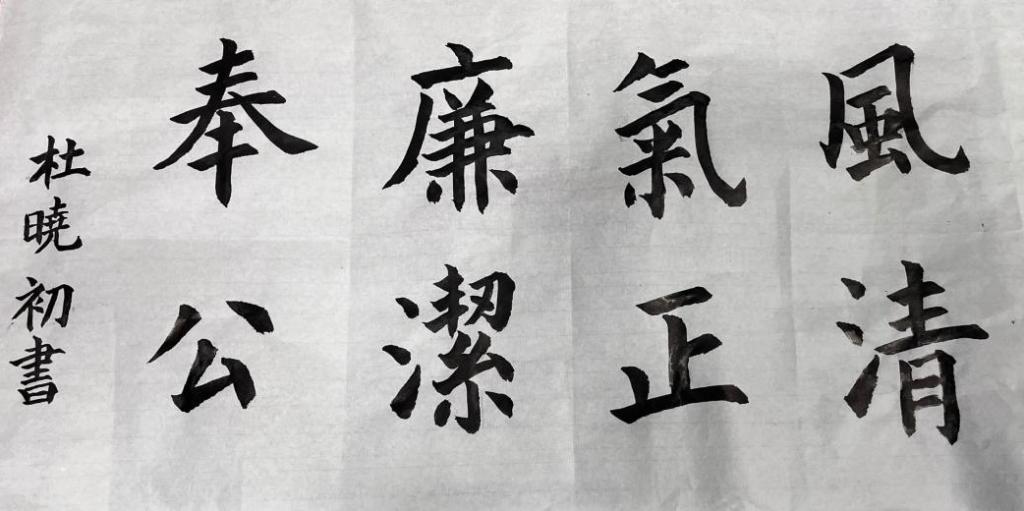 風清
氣正
廉潔
奉公
杜曉初書